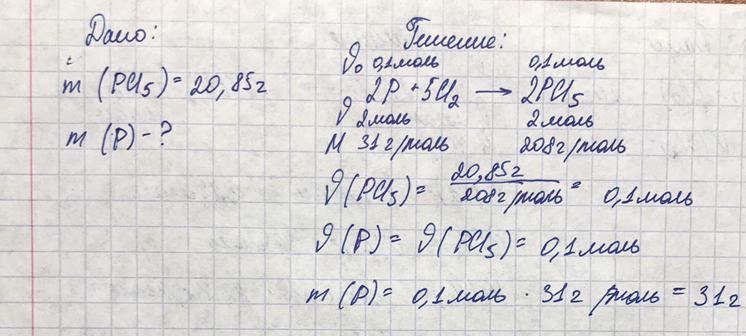 Дано:
m (PCl5) = 20,85г
m (P) - ?
Решение:
ϑ0 0,1моль 0,1моль
2P + 5Cl2 → 2PCl5
ϑ 2моль 2моль
M 31г/моль 208г/моль
ϑ(PCl5) = 20,85г / 208г/моль = 0,1моль
ϑ(P) = ϑ(PCl5) = 0,1моль
m (P) = 0,1моль · 31г/моль = 31г